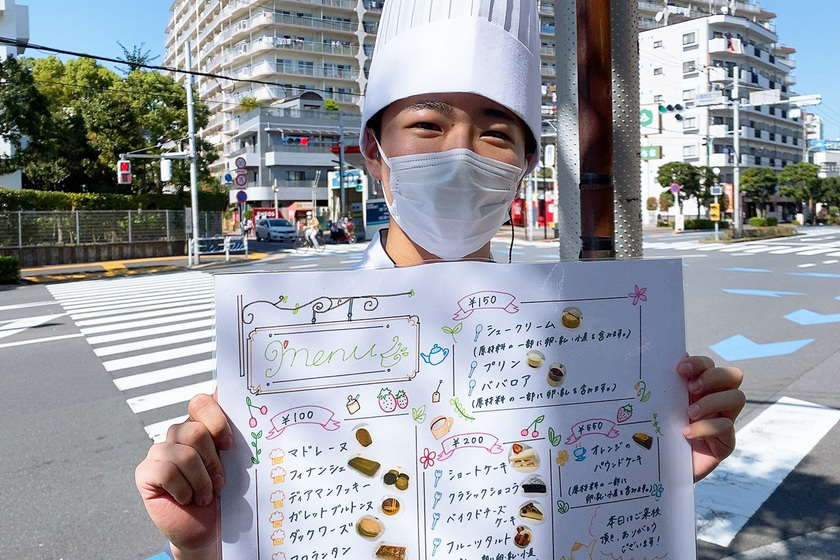 menu
¥150
シュークリーム
(原材料の一部に卵・乳・小麦を含みます。)
プリン
ババロア
(原材料の一部に卵・乳・小麦を含みます。)
¥100
マドレーヌ
フィナンシェ
ディアマンクッキー
ガレットブルトンヌ
ダックワーズ
フロランタン
¥200
ショートケーキ
クラシックショコラ
ベイクドチーズ
ケーキ
フルーツタルト
¥550
オレンジの
パウンドケーキ
(原材料の一部に
卵・乳・小麦を含みます。)
本日はご来校
頂き、ありがとう
ございます!